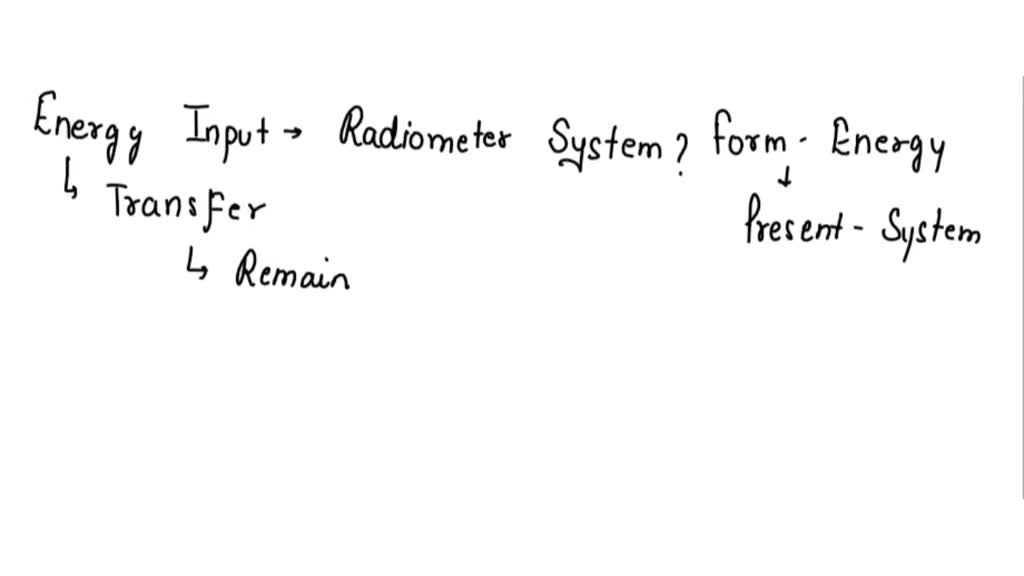 Energy Input → Radiometer System? form - Energy
↳ Transfer
↓
Present - System
↳ Remain